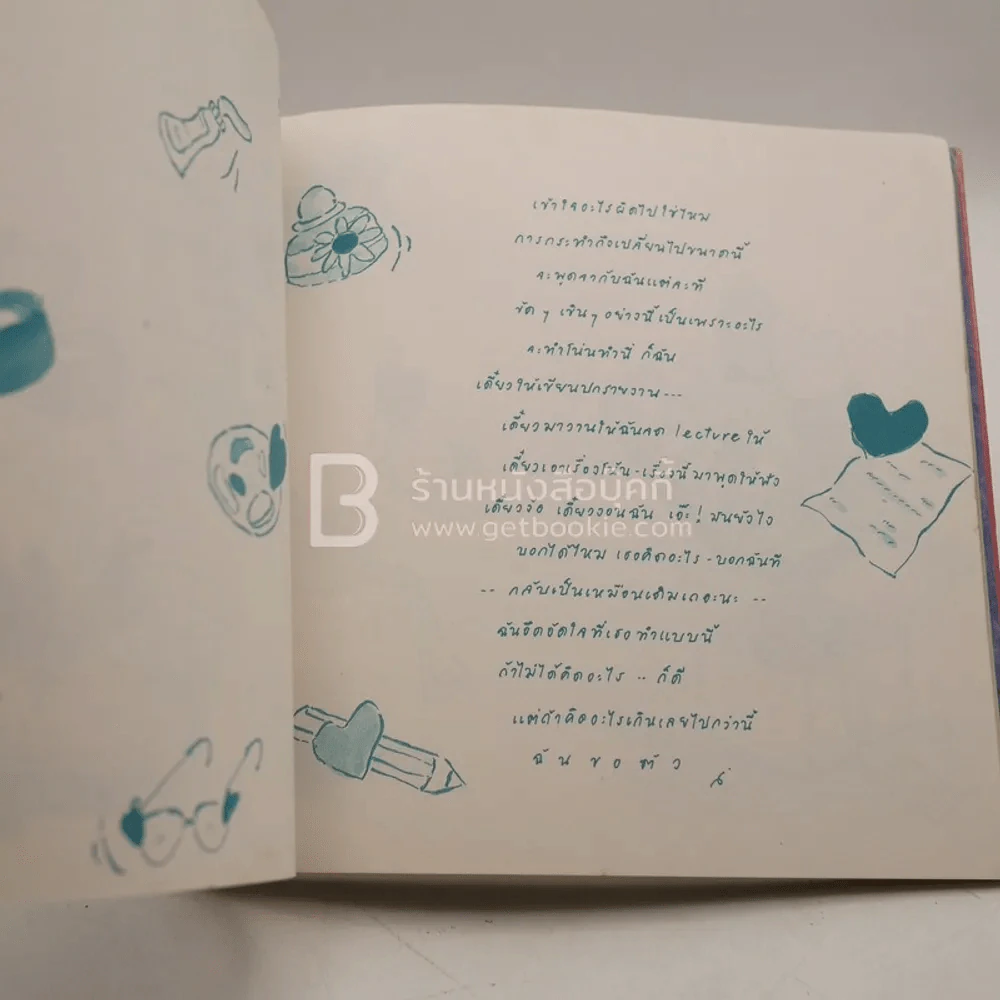 เข้าใจอะไรผิดไปใช่ไหม
การกระทำถึงเปลี่ยนไปขนาดนี้
จะพูดจากับฉันแต่ละที
ขัดๆ เขินๆ อย่างนี้เป็นเพราะอะไร
จะทำโน่นทำนี่ ก็ฉัน
เดี๋ยวให้เขียนปกรายงาน---
เดี๋ยวมาวานให้ฉันจด lecture ให้
เดี๋ยวเอาเรื่องโน้น-เรื่องนี้มาพูดให้ฟัง
เดี๋ยวง้อ เดี๋ยวงอนฉัน เอ๊ะ! มันยังไง
บอกได้ไหม เธอคิดอะไร-บอกฉันที
-- กลับเป็นเหมือนเดิมเถอะนะ --
ฉันอึดอัดใจที่เธอทำแบบนี้
ถ้าไม่ได้คิดอะไร -- ก็ดี
แต่ถ้าคิดอะไรเกินเลยไปกว่านี้
ฉันขอตัว
B ร้านหนังสือบุคกี้
www.getbookie.com